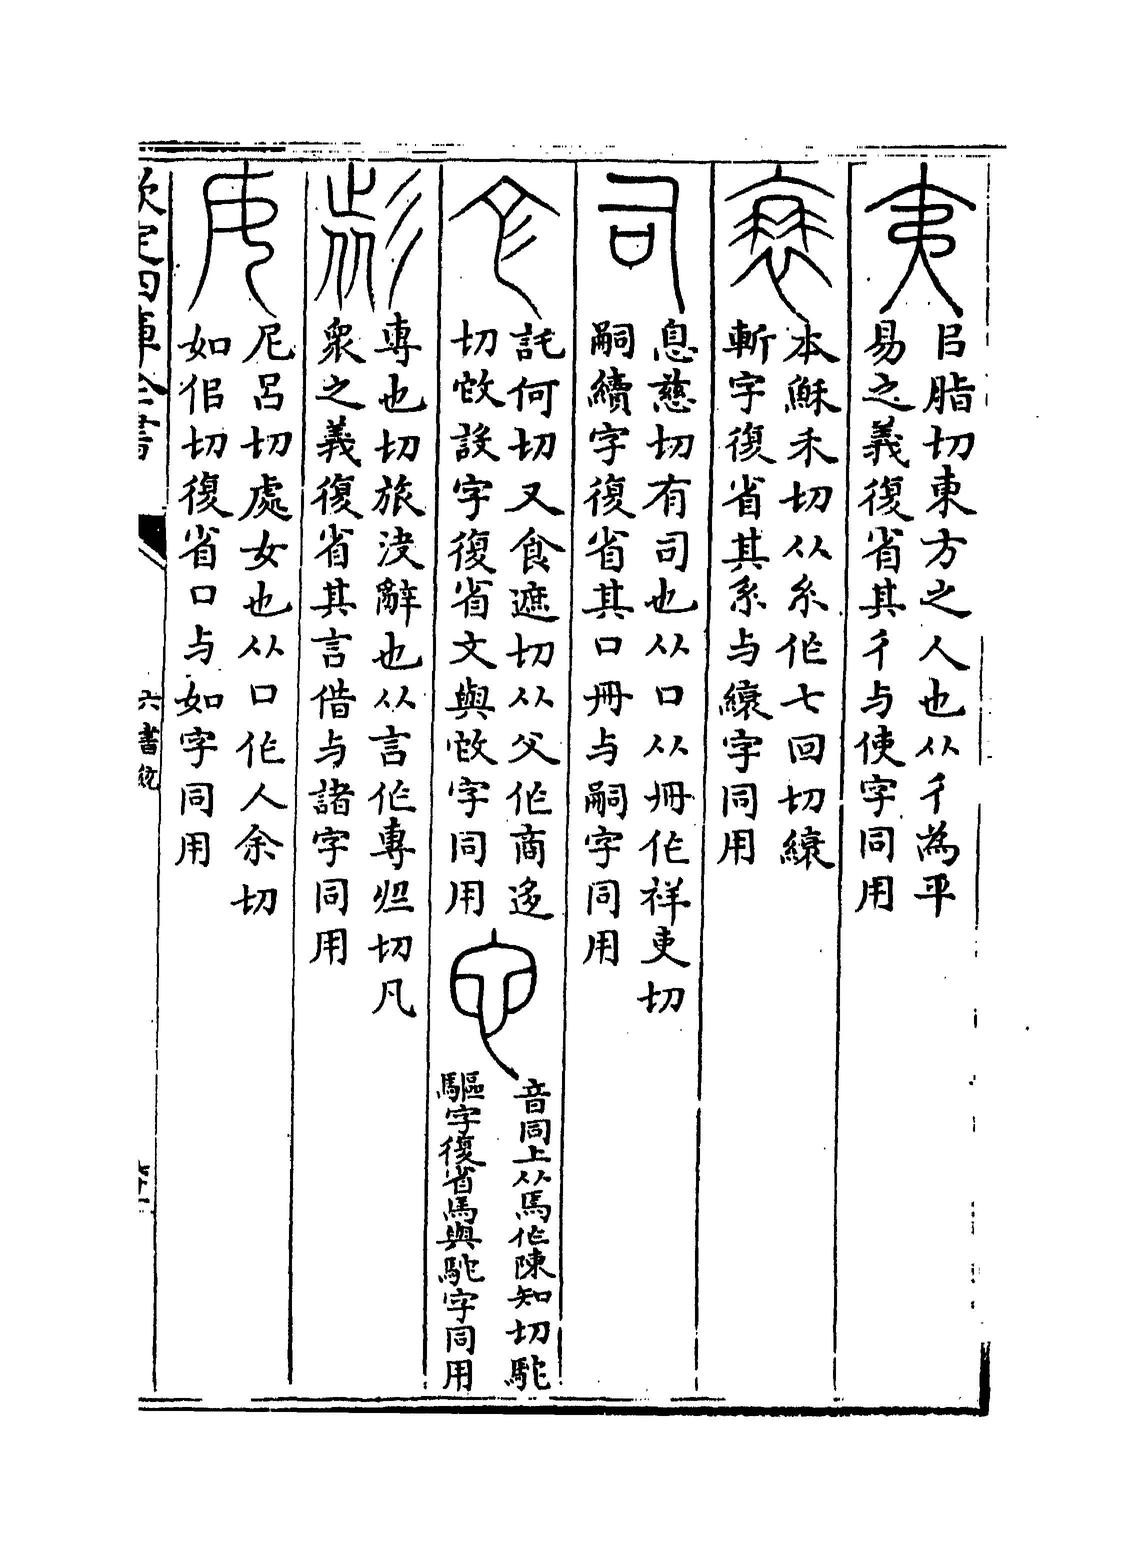 㠯脂切東方之人也从彳為平
易之義復省其彳与㣥字同用
本穌禾切从糸作七回切縗
斬字復省其糸与縗字同用
息慈切有司也从口从冊作祥吏切
嗣續字復省其口冊与嗣字同用
託何切又食遮切从父作商迻
切㪉設字復省文與㪉字同用
音同上从馬作陳知切駞
驅字復省馬與駞字同用
專也切旅決辭也从言作專𤈦切凡
衆之義復省其言借与諸字同用
尼呂切處女也从口作人余切
如佀切復省口与如字同用
欽定四庫全書
六書統